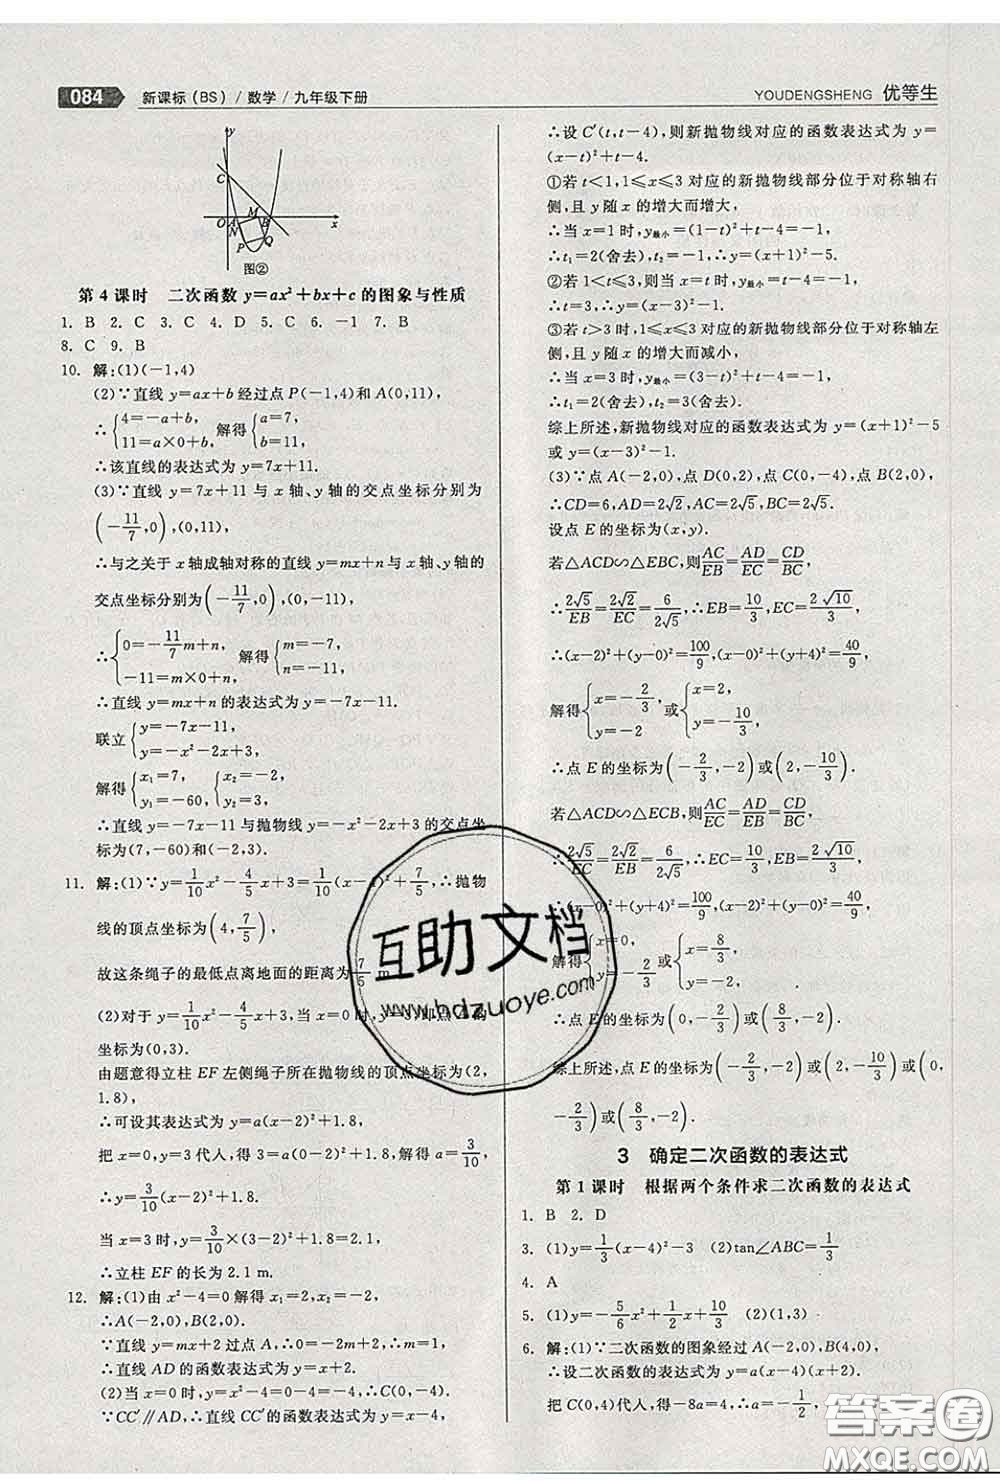 084 新课标(BS) / 数学 / 九年级下册
YOUDENGSHENG 优等生
y
C
M
O A B x
N
P Q
图②
第 4 课时 二次函数 y=ax²+bx+c 的图象与性质
1. B 2. C 3. C 4. D 5. C 6. -1 7. B
8. C 9. B
10. 解:(1)(-1,4)
(2)∵直线 y=ax+b 经过点 P(-1,4)和 A(0,11),
∴{4=-a+b, 11=a×0+b, 解得{a=7, b=11.
∴该直线的表达式为 y=7x+11.
(3)∵直线 y=7x+11 与 x 轴、y 轴的交点坐标分别为
(-11/7,0),(0,11),
∴与之关于 x 轴成轴对称的直线 y=mx+n 与 x 轴、y 轴的
交点坐标分别为(-11/7,0),(0,-11).
∴{0=-11/7m+n, -11=m×0+n, 解得{m=-7, n=-11.
∴直线 y=mx+n 的表达式为 y=-7x-11.
联立{y=-7x-11, y=-x²-2x+3,
解得{x₁=7, y₁=-60, {x₂=-2, y₂=3.
∴直线 y=-7x-11 与抛物线 y=-x²-2x+3 的交点坐
标为(7,-60)和(-2,3).
11. 解:(1)∵y=1/10x²-4/5x+3=1/10(x-4)²+7/5,∴抛物
线的顶点坐标为(4,7/5),
故这条绳子的最低点离地面的距离为7/5 m.
(2)对于 y=1/10x²-4/5x+3,当 x=0 时,y=3,即点 A 的
坐标为(0,3).
由题意得立柱 EF 左侧绳子所在抛物线的顶点坐标为(2,
1.8),
∴可设其表达式为 y=a(x-2)²+1.8,
把 x=0,y=3 代入,得 3=a(0-2)²+1.8,解得 a=3/10,
∴y=3/10(x-2)²+1.8.
当 x=3 时,y=3/10×(3-2)²+1.8=2.1,
∴立柱 EF 的长为 2.1 m.
12. 解:(1)由 x²-4=0 解得 x₁=2,x₂=-2,
∴A(-2,0),B(2,0).
∵直线 y=mx+2 过点 A,∴0=-2m+2,∴m=1,
∴直线 AD 的函数表达式为 y=x+2.
(2)当 x=0 时,y=x²-4=-4,∴C(0,-4).
∵CC′∥AD,∴直线 CC′的函数表达式为 y=x-4,
∴设 C′(t,t-4),则新抛物线对应的函数表达式为 y=
(x-t)²+t-4.
①若 t<1,1≤x≤3 对应的新抛物线部分位于对称轴右
侧,且 y 随 x 的增大而增大,
∴当 x=1 时,y最小=(1-t)²+t-4=-1,
∴t₁=2(舍去),t₂=-1,∴y=(x+1)²-5.
②若 1≤t≤3,则当 x=t 时,y最小=t-4=-1,
∴t=3,∴y=(x-3)²-1.
③若 t>3 时,1≤x≤3 对应的新抛物线部分位于对称轴左
侧,且 y 随 x 的增大而减小,
∴当 x=3 时,y最小=(3-t)²+t-4=-1,
∴t₁=2(舍去),t₂=3(舍去).
综上所述,新抛物线对应的函数表达式为 y=(x+1)²-5
或 y=(x-3)²-1.
(3)∵点 A(-2,0),点 D(0,2),点 C(0,-4),点 B(2,0),
∴CD=6,AD=2√2,AC=2√5,BC=2√5.
设点 E 的坐标为(x,y).
若△ACD∽△EBC,则AC/EB=AD/EC=CD/BC,
∴2√5/EB=2√2/EC=6/2√5,∴EB=10/3,EC=2√10/3,
∴(x-2)²+(y-0)²=100/9,(x-0)²+(y+4)²=40/9,
解得{x=-2/3, y=-2 或{x=-2, y=-10/3,
∴点 E 的坐标为(-2/3,-2)或(-2,-10/3).
若△ACD∽△ECB,则AC/EC=AD/EB=CD/BC,
∴2√5/EC=2√2/EB=6/2√5,∴EC=10/3,EB=2√10/3,
∴(x-0)²+(y+4)²=100/9,(x-2)²+(y-0)²=40/9,
解得{x=0, y=-2/3 或{x=8/3, y=-2.
∴点 E 的坐标为(0,-2/3)或(8/3,-2).
综上所述,点 E 的坐标为(-2/3,-2)或(-2,-10/3)或(0,
-2/3)或(8/3,-2).
3 确定二次函数的表达式
第 1 课时 根据两个条件求二次函数的表达式
1. B 2. D
3. (1)y=1/3(x-4)²-3 (2)tan∠ABC=1/3
4. A
5. (1)y=-5/6x²+1/2x+10/3 (2)(1,3)
6. 解:(1)∵二次函数的图象经过 A(-2,0),B(4,0),
∴设二次函数的表达式为 y=a(x-4)(x+2).
把 C(0,4)代入,得-8a=4,∴a=-1/2,
互助文档
www.hdzuoye.com
答案圈
MXQE.COM